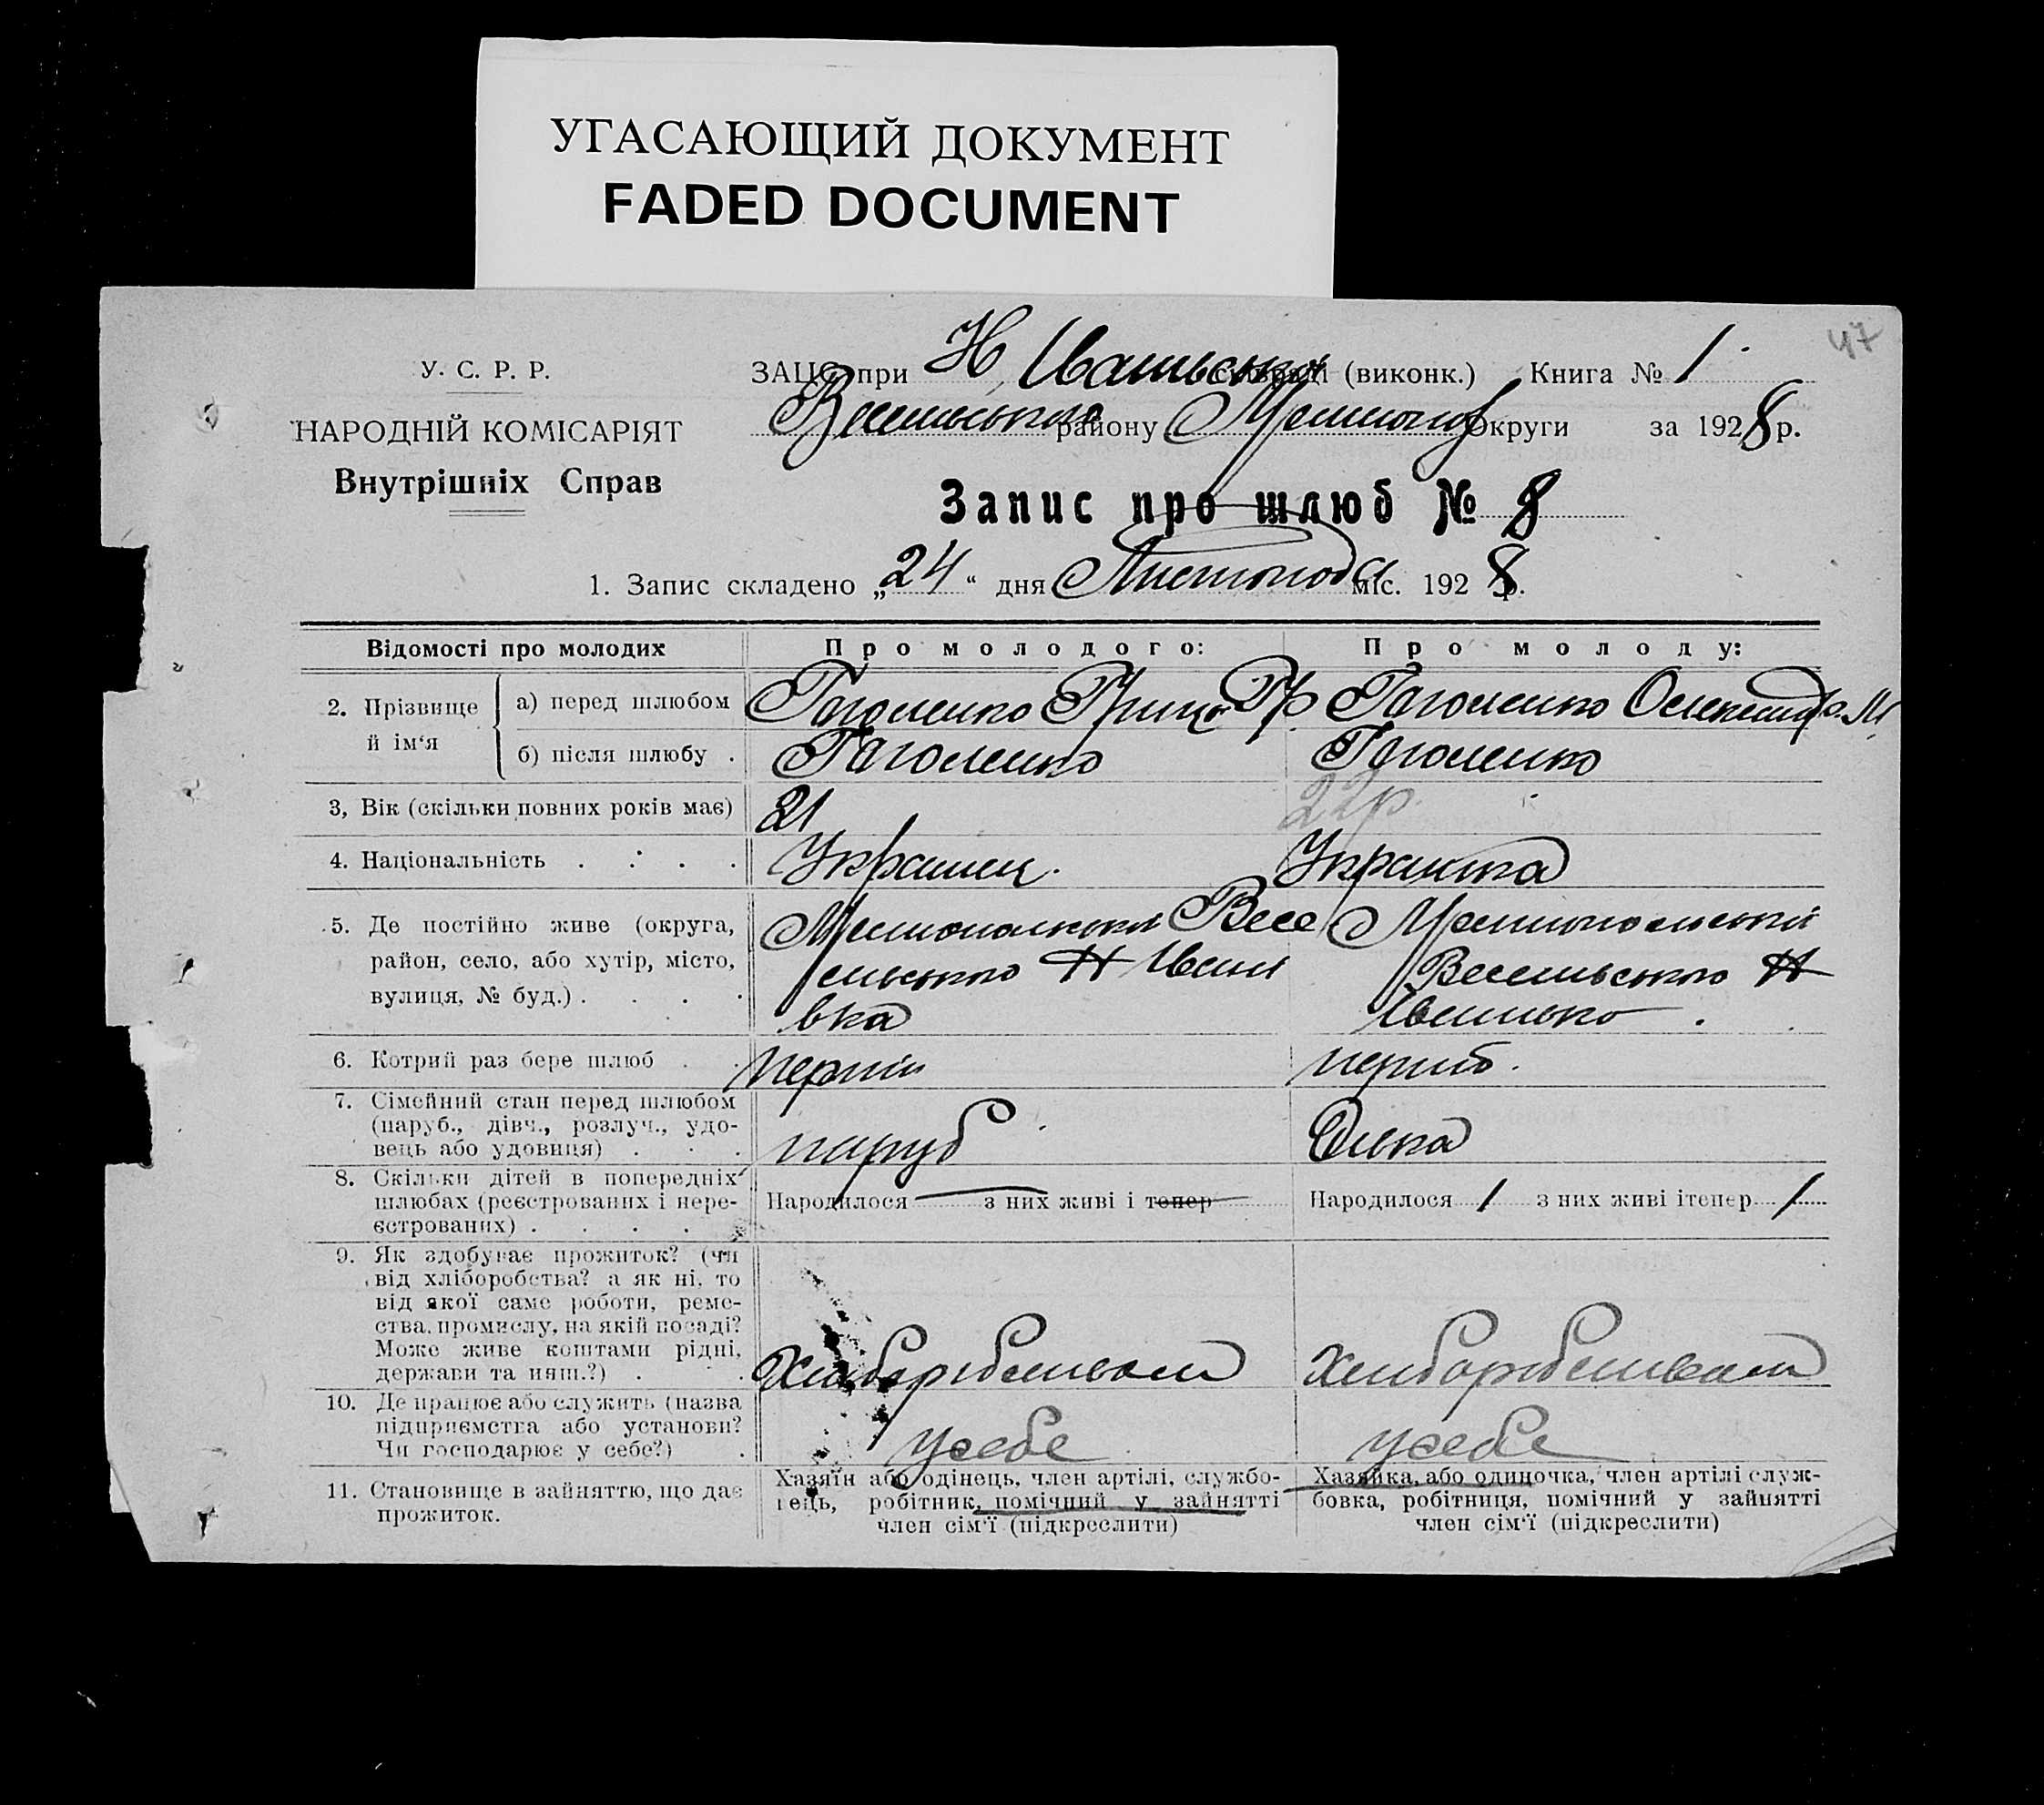 УГАСАЮЩИЙ ДОКУМЕНТ
FADED DOCUMENT
47
У. С. Р. Р.
НАРОДНІЙ КОМІСАРІЯТ
Внутрішніх Справ
ЗАЦС при Н (виконк.) Книга № 1
району округи за 1928 р.
Запис про шлюб № 8
1. Запис складено „24“ дня Листопода міс. 1928 р.
Відомості про молодих
Про молодого:
Про молоду:
2. Прізвище й ім‘я
а) перед шлюбом
Гоголенко Гриць Гр
Гоголенко Олександр. М
б) після шлюбу .
Гоголенко
Гоголенко
3, Вік (скільки повних років має)
21
22р.
4. Національність . . . .
Украинец.
Украинка
5. Де постійно живе (округа,
район, село, або хутір, місто,
вулиця, № буд.) . . . .
Веселського Н
вка
Мелітопольській
Веселського Н
6. Котрий раз бере шлюб . .
первий
7. Сімейний стан перед шлюбом
(паруб., дівч., розлуч., удо-
вець або удовиця) . . .
паруб
Дівка
8. Скільки дітей в попередніх
шлюбах (реєстрованих і нере-
єстрованих) . . . . .
Народилося — з них живі і тепер —
Народилося 1 з них живі ітепер 1
9. Як здобуває прожиток? (чи
від хліборобства? а як ні, то
від якої саме роботи, реме-
ства, промислу, на якій посаді?
Може живе коштами рідні,
держави та инш.?) . .
10. Де працює або служить (назва
підприємства або установи?
Чи господарює у себе?) .
усебе
усебе
11. Становище в зайняттю, що дає
прожиток.
Хазяїн або одінець, член артілі, службо-
вець, робітник, помічний у зайнятті
член сім‘ї (підкреслити)
Хазяйка, або одиночка, член артілі служ-
бовка, робітниця, помічний у зайнятті
член сім‘ї (підкреслити)